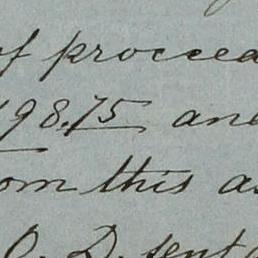 of proceed
198.75 and
om this as
O. D. sent